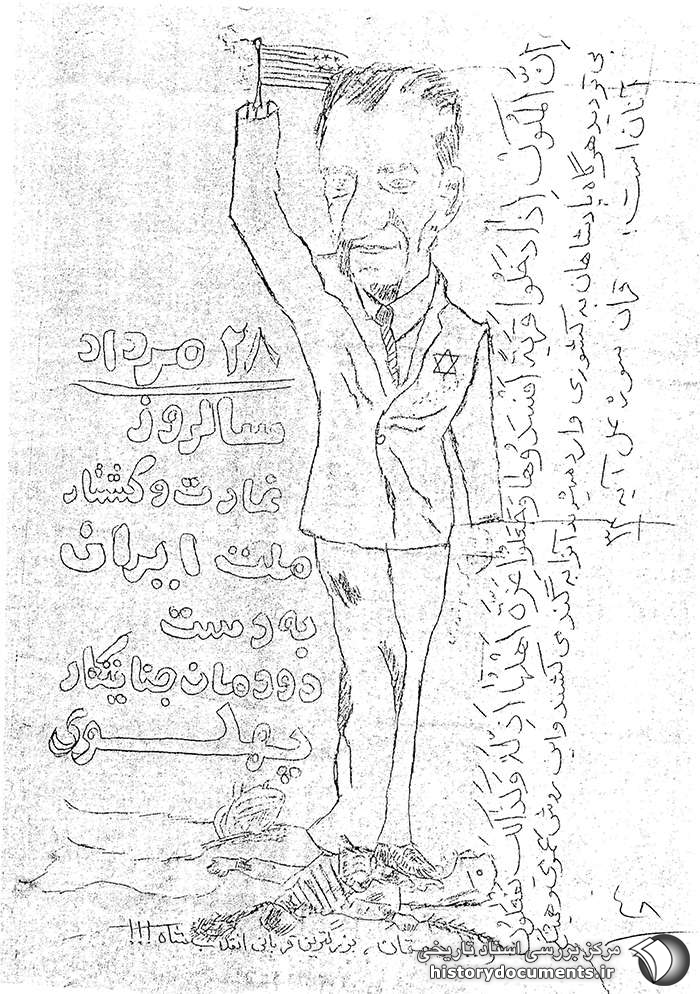 ۲۸ مرداد
سالروز
غارت و کشتار
ملت ایران
به دست
دودمان جنایتکار
پهلوی
اِنَّ الْمُلُوکَ اِذا دَخَلُوا قَرْیَةً اَفْسَدُوها وَجَعَلُوا اَعِزَّةَ اَهْلِها اَذِلَّةً وَکَذالِکَ یَفْعَلُونَ
بی تردید هرگاه پادشاهان به کشوری وارد میشوند آنرا به گندی کشند و این روش عمومی و
آنان است. قرآن سوره نمل آیه ۳۴
بزرگترین قربانی انقلاب شاه !!!
مرکز بررسی اسناد تاریخی
historydocuments.ir